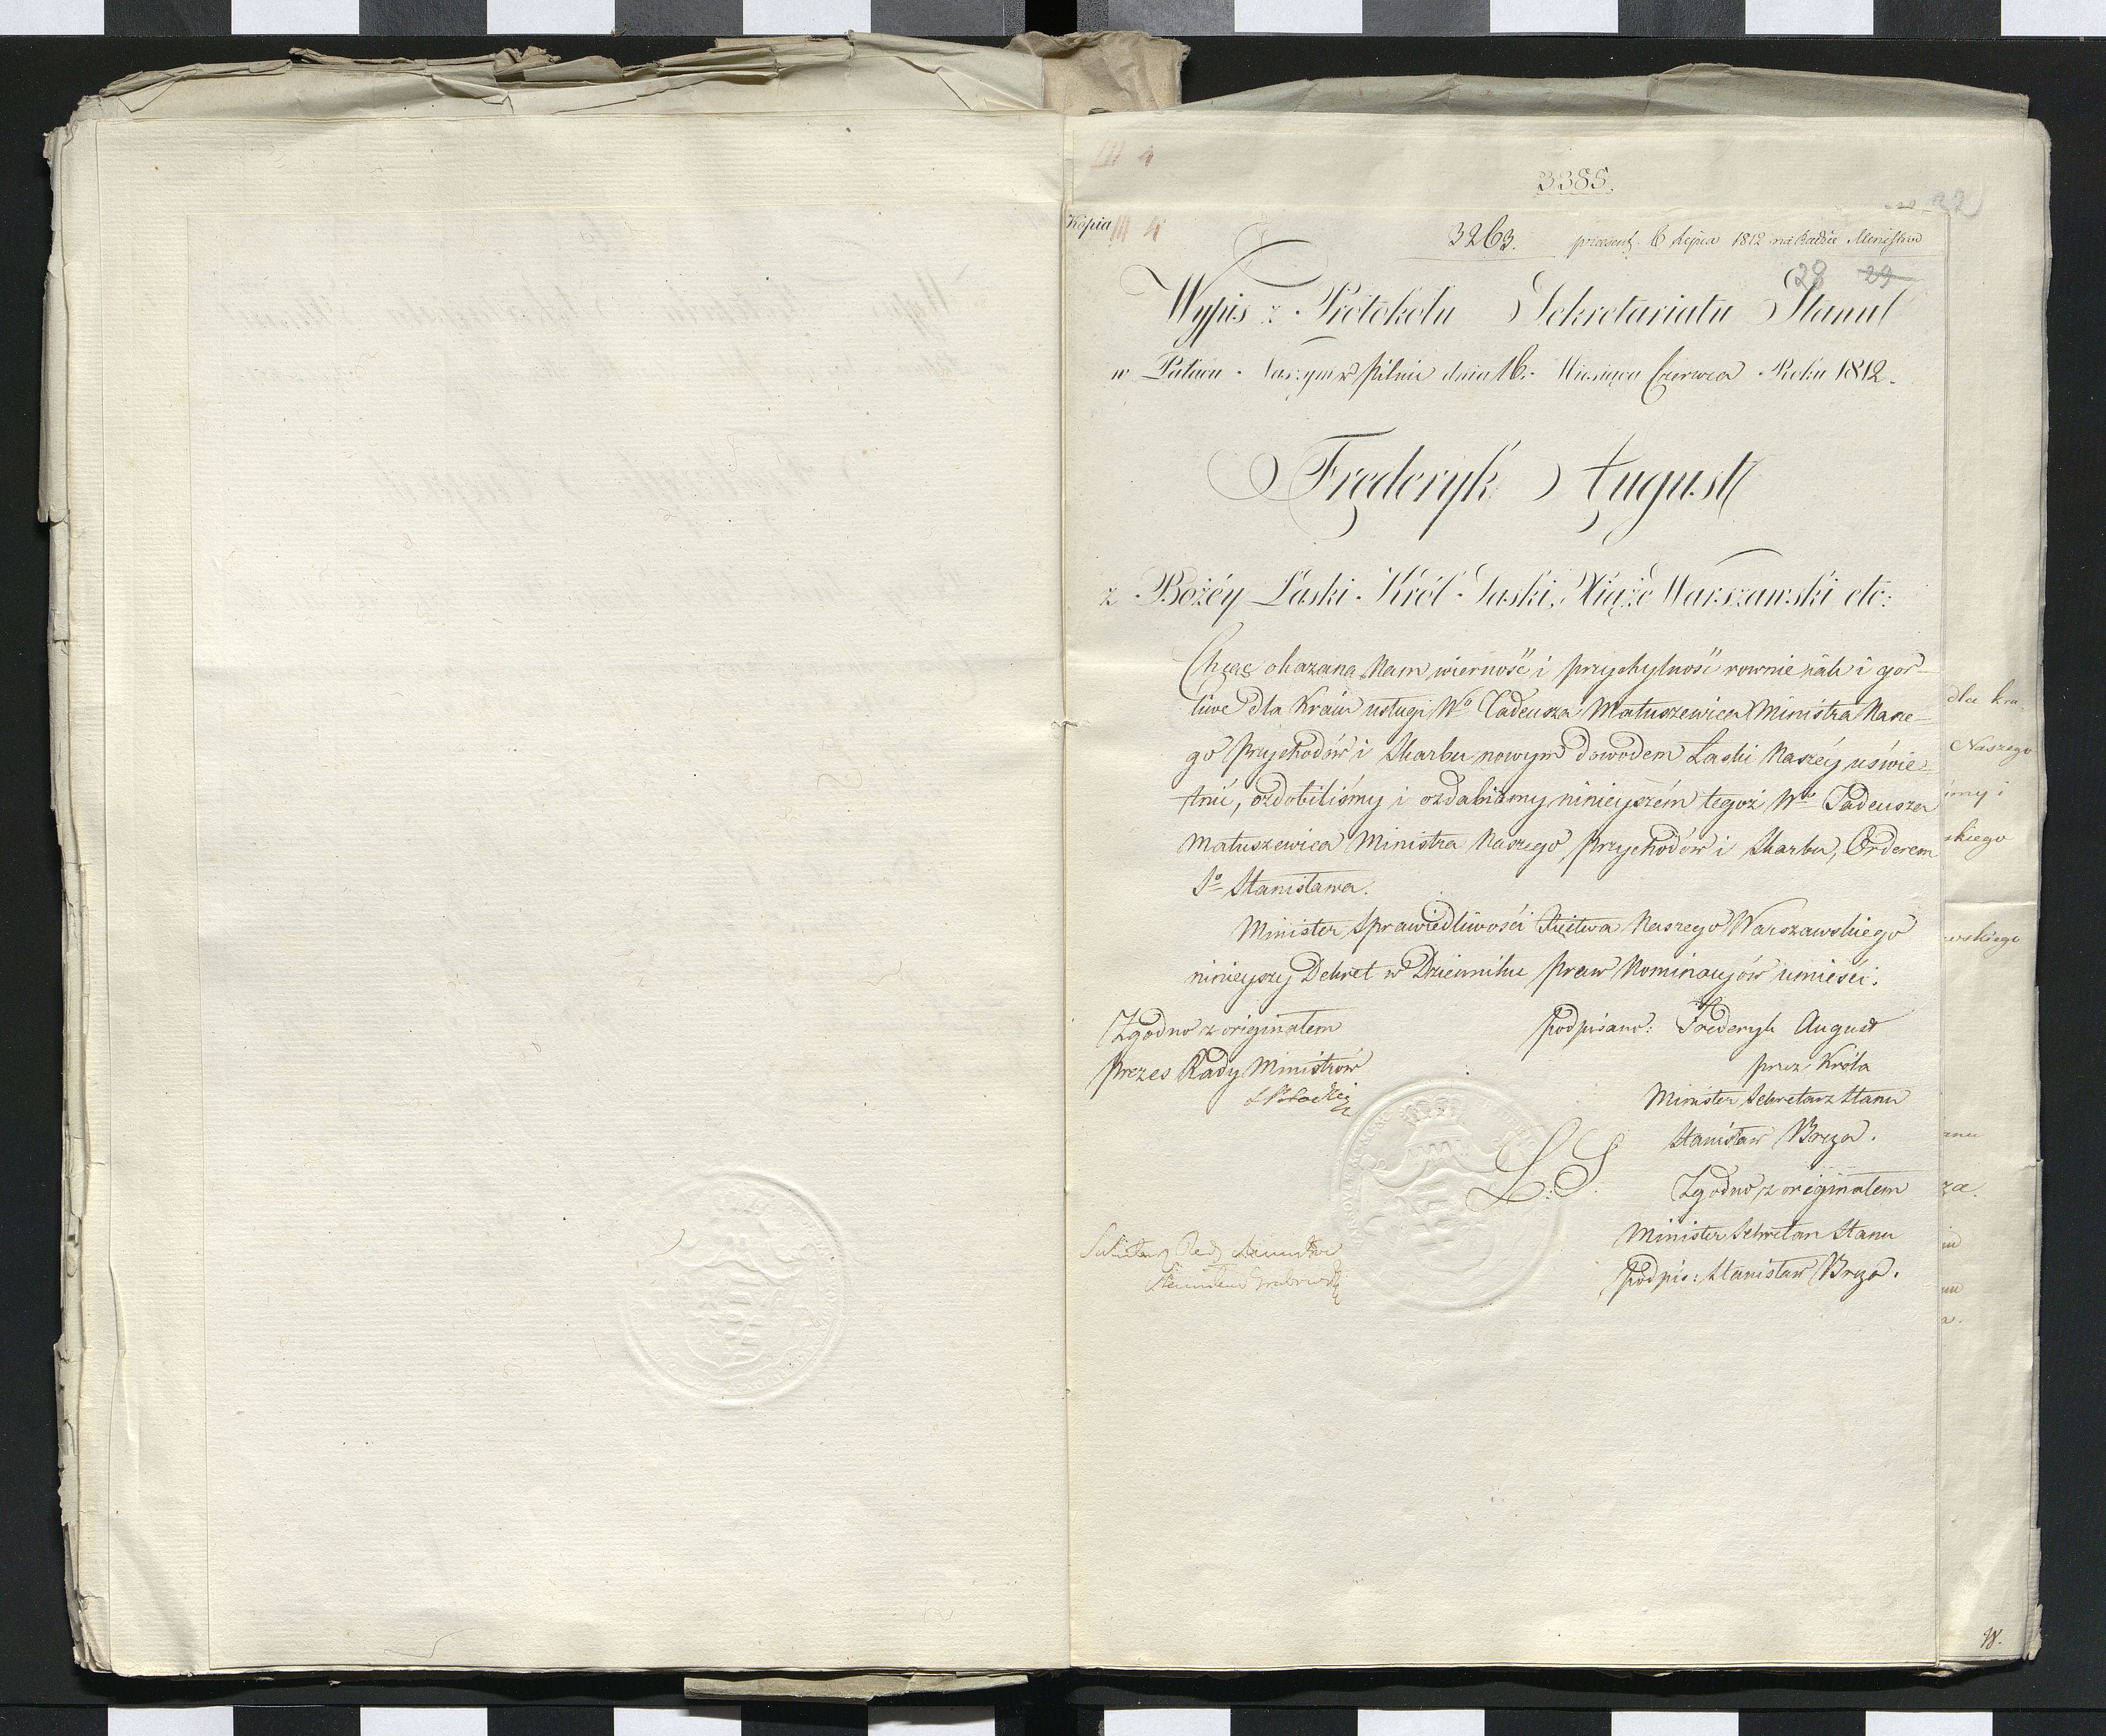 III 4
3385.
32
Kopia III 4
3263. praesent. 6 Lipca 1812 na Radzie Ministrów
28 29
Wypis z Protokołu Sekretariatu Stanu
w Pałacu Naszym w Pilnic dnia 16. Miesiąca Czerwca Roku 1812.
Fryderyk August
z Bożéy Łaski Król Saski, Xiąże Warszawski etc:
Chcąc okazaną Nam wierność i przychylność rownie jak i gor-
liwe dla Kraiu usługi Wo Tadeusza Matuszewica Ministra Nasze-
go Przychodów i Skarbu nowym dowodem Łaski Naszéy uświe-
tnić, ozdobiliśmy i ozdabiamy ninieyszém tegoż Wo Tadeusza
Matuszewica Ministra Naszego Przychodów i Skarbu, Orderem
So Stanisława.
Minister Sprawiedliwości Xięstwa Naszego Warszawskiego
ninieyszy Dekret w Dzienniku Praw Nominacyów umieści.
Zgodno z originałem
Prezes Rady Ministrów
S Potocki
podpisano: Fryderyk August
przez Króla
Minister Sekretarz Stanu
Stanisław Breza.
L.S.
Zgodno z originałem
Minister Sekretarz Stanu
podpis: Stanisław Breza.
Sekretarz Rady Ministrów
Stanisław Grabowski
dla kra
Naszego
śmy i
skiego
wskiego
anu
za.
18.